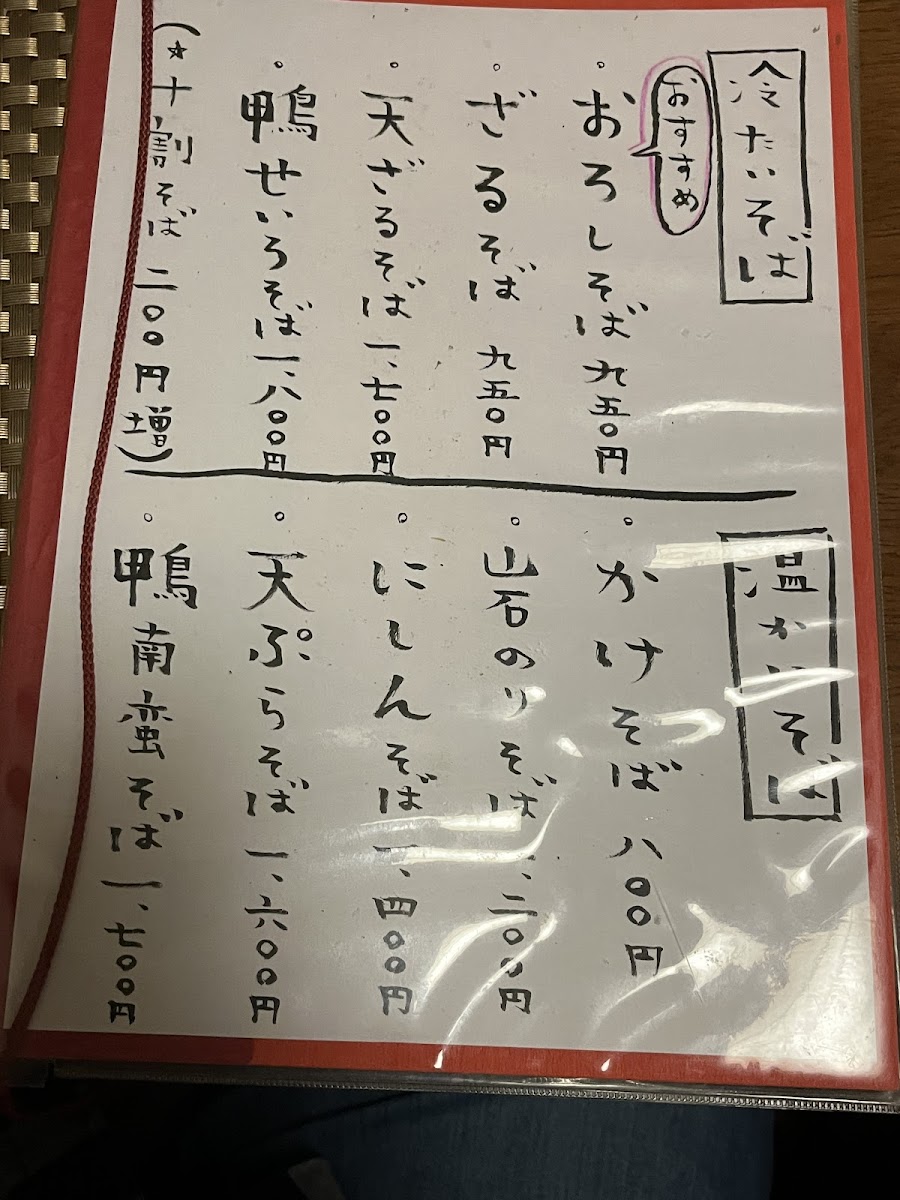 冷たいそば
おすすめ
。おろしそば 九五〇円
。ざるそば 九五〇円
。天ざるそば 一、七〇〇円
。鴨せいろそば 一、八〇〇円
(☆十割そば 二〇〇円増)
温かいそば
。かけそば 八〇〇円
。岩のりそば 一、二〇〇円
。にしんそば 一、四〇〇円
。天ぷらそば 一、六〇〇円
。鴨南蛮そば 一、七〇〇円